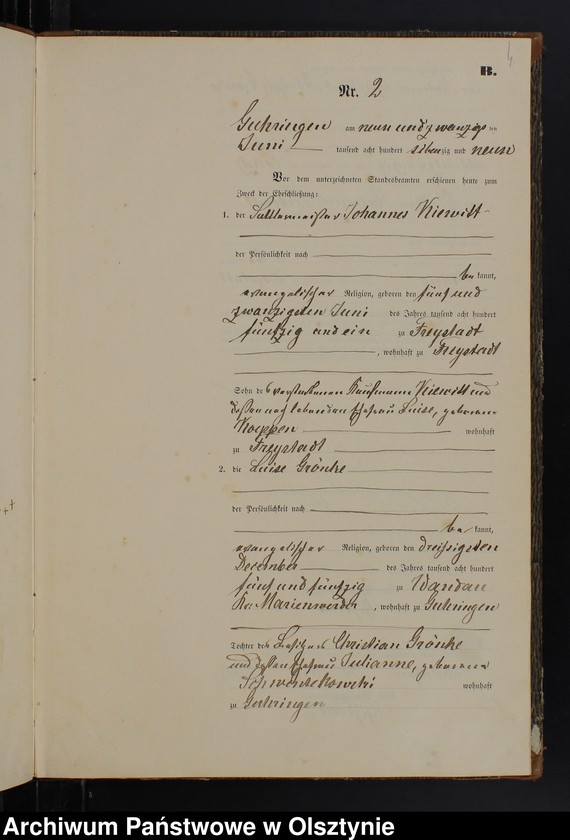 4
B.
Nr. 2
Guhringen am neun und zwanzigsten
Juni tausend acht hundert siebenzig und neun
Vor dem unterzeichneten Standesbeamten erschienen heute zum
Zweck der Eheschließung:
1. der Sattlermeister Johannes Kiewitt
der Persönlichkeit nach
be kannt,
evangelischer Religion, geboren den fünf und
zwanzigsten Juni des Jahres tausend acht hundert
fünfzig und ein zu Freystadt
, wohnhaft zu Freystadt
Sohn des verstorbenen Kaufmanns Kiewitt und
dessen noch lebenden Ehefrau Luise, geborene
Koeppen wohnhaft
zu Freystadt
2. die Luise Grönke
der Persönlichkeit nach
be kannt,
evangelischer Religion, geboren den dreissigsten
December des Jahres tausend acht hundert
fünf und fünfzig zu
Kr. Marienwerder, wohnhaft zu Guhringen
Tochter des Besitzers Christian Grönke
und dessen Ehefrau Julianne, geborene
wohnhaft
zu Guhringen
Archiwum Państwowe w Olsztynie